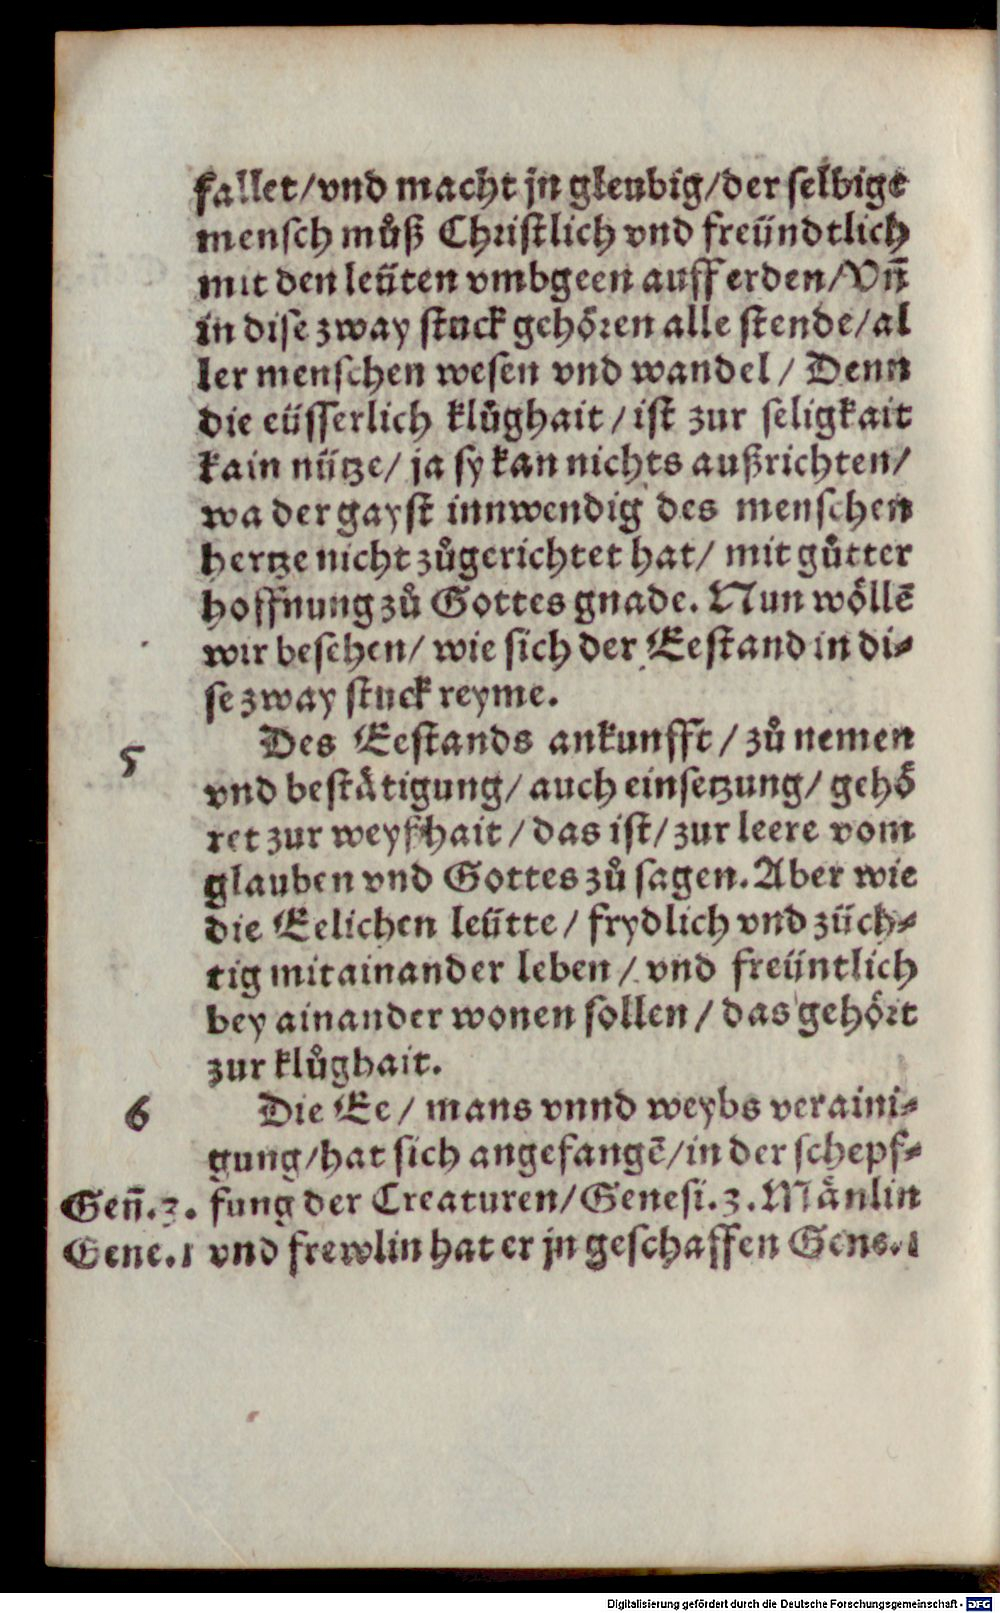 fallet/vnd macht jn gleubig/der selbige
mensch můß Christlich vnd freündtlich
mit den leüten vmbgeen auff erden/Vñ
in dise zway stuck gehören alle stende/al
ler menschen wesen vnd wandel/ Denn
die eüsserlich klůghait/ist zur seligkait
kain nütze/ ja sy kan nichts außrichten/
wa der gayst innwendig des menschen
hertze nicht zůgerichtet hat/ mit gůtter
hoffnung zů Gottes gnade. Nun wöllē
wir besehen/ wie sich der Eestand in di-
se zway stuck reyme.
5 Des Eestands ankunfft/zů nemen
vnd bestätigung/ auch einsetzung/ gehö
ret zur weyßhait/das ist/zur leere vom
glauben vnd Gottes zů sagen. Aber wie
die Eelichen leütte/ frydlich vnd züch-
tig mitainander leben/ vnd freüntlich
bey ainander wonen sollen/das gehört
zur klůghait.
6 Die Ee/ mans vnnd weybs veraini-
gung/hat sich angefangē/in der schepf-
Geñ.z. fung der Creaturen/Genesi.z.Mänlin
Gene.1 vnd frewlin hat er jn geschaffen Gene.1
Digitalisierung gefördert durch die Deutsche Forschungsgemeinschaft - DFG